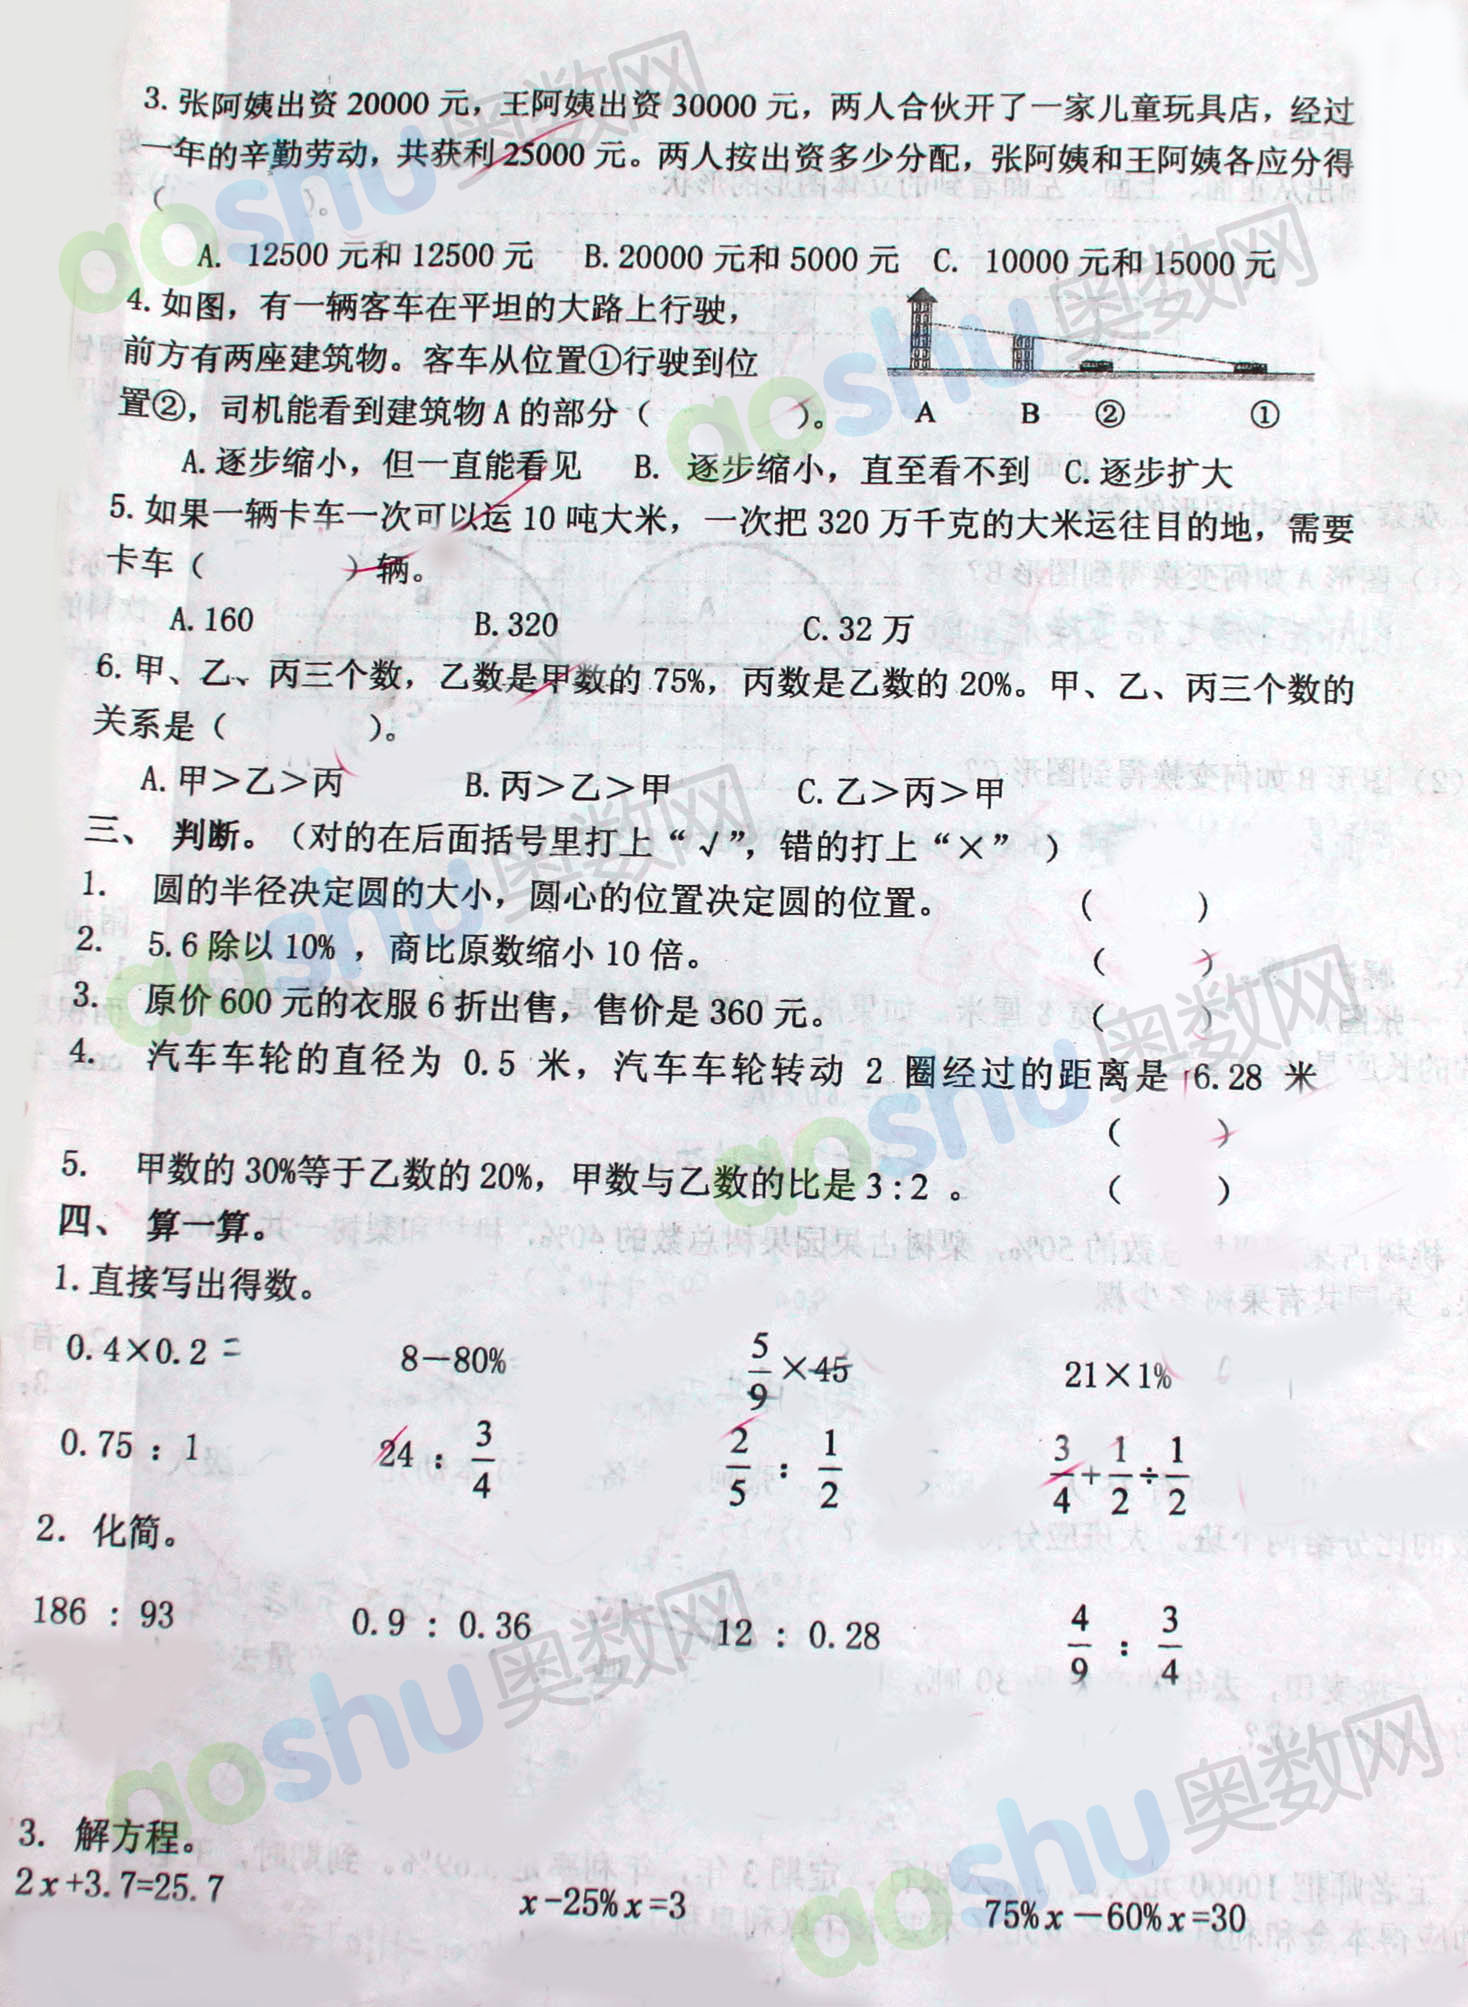 3. 张阿姨出资 20000 元，王阿姨出资 30000 元，两人合伙开了一家儿童玩具店，经过
一年的辛勤劳动，共获利 25000 元。两人按出资多少分配，张阿姨和王阿姨各应分得
（ ）。
A. 12500 元和 12500 元 B. 20000 元和 5000 元 C. 10000 元和 15000 元
4. 如图，有一辆客车在平坦的大路上行驶，
前方有两座建筑物。客车从位置①行驶到位
置②，司机能看到建筑物 A 的部分（ ）。
A B ② ①
A. 逐步缩小，但一直能看见 B. 逐步缩小，直至看不到 C. 逐步扩大
5. 如果一辆卡车一次可以运 10 吨大米，一次把 320 万千克的大米运往目的地，需要
卡车（ ）辆。
A. 160 B. 320 C. 32 万
6. 甲、乙、丙三个数，乙数是甲数的 75%，丙数是乙数的 20%。甲、乙、丙三个数的
关系是（ ）。
A. 甲＞乙＞丙 B. 丙＞乙＞甲 C. 乙＞丙＞甲
三、 判断。（对的在后面括号里打上“√”，错的打上“×”）
1. 圆的半径决定圆的大小，圆心的位置决定圆的位置。 （ ）
2. 5.6 除以 10%，商比原数缩小 10 倍。 （ ）
3. 原价 600 元的衣服 6 折出售，售价是 360 元。 （ ）
4. 汽车车轮的直径为 0.5 米，汽车车轮转动 2 圈经过的距离是 6.28 米
（ ）
5. 甲数的 30%等于乙数的 20%，甲数与乙数的比是 3 : 2 。 （ ）
四、 算一算。
1. 直接写出得数。
0.4×0.2 = 8－80% 5/9×45 21×1%
0.75 : 1 24 : 3/4 2/5 : 1/2 3/4+1/2÷1/2
2. 化简。
186 : 93 0.9 : 0.36 12 : 0.28 4/9 : 3/4
3. 解方程。
2x+3.7=25.7 x-25%x=3 75%x－60%x=30
aoshu奥数网
aoshu奥数网
aoshu奥数网
aoshu奥数网
aoshu奥数网
aoshu奥数网